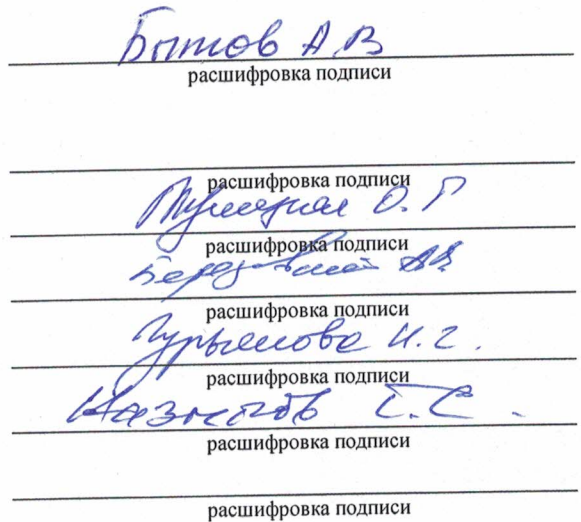 Бытов А.В
расшифровка подписи
расшифровка подписи
О. Г
расшифровка подписи
АВ
расшифровка подписи
Гурьянова И.г.
расшифровка подписи
расшифровка подписи
расшифровка подписи